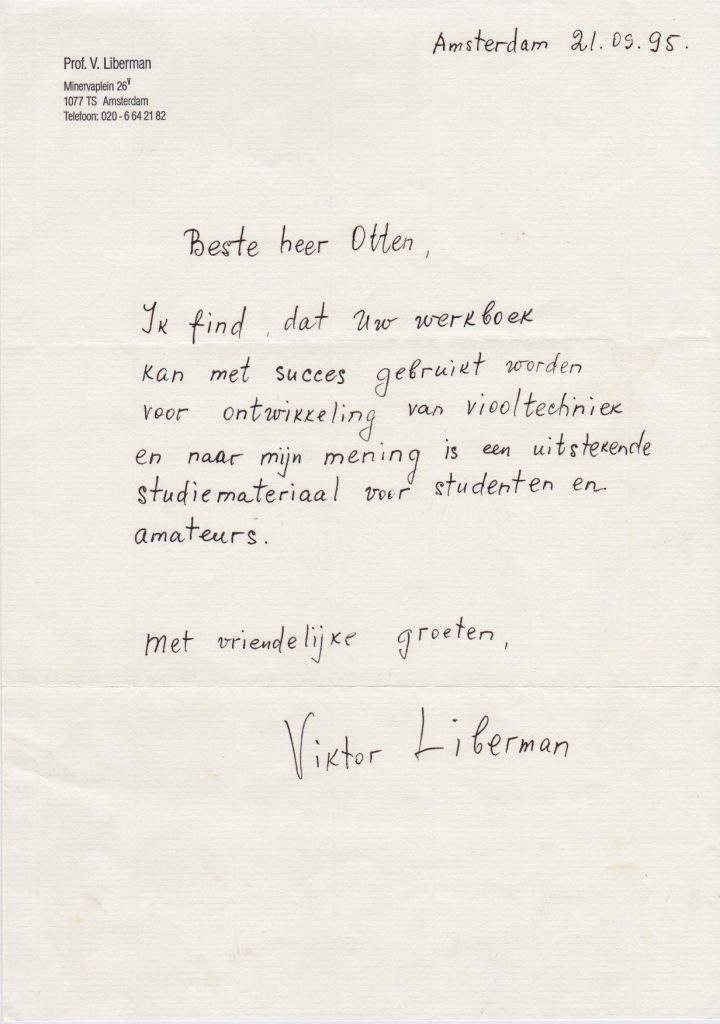 Amsterdam 21.09.95.
Prof. V. Liberman
Minervaplein 26V
1077 TS Amsterdam
Telefoon: 020 - 6 64 21 82
Beste heer Otten,
Ik find, dat Uw werkboek
kan met succes gebruikt worden
voor ontwikkeling van viooltechniek
en naar mijn mening is een uitstekende
studiemateriaal voor studenten en
amateurs.
Met vriendelijke groeten,
Viktor Liberman